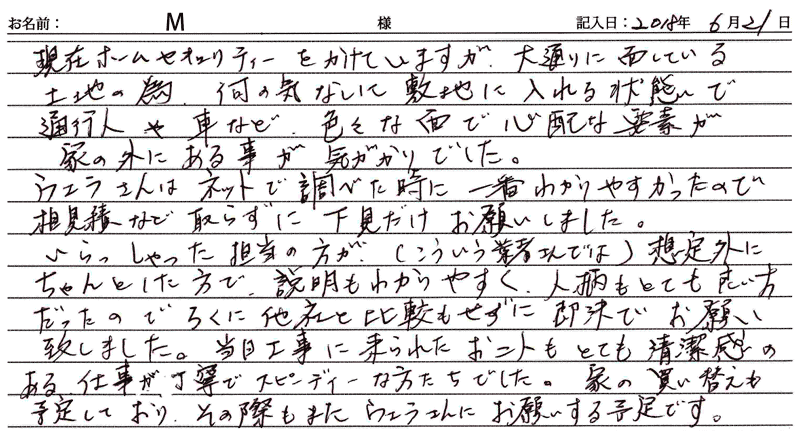 お名前： M 様 記入日：2018年 6月21日
現在ホームセキュリティーをかけていますが、大通りに面している
土地の為、何の気なしに敷地に入れる状態で
通行人や車など、色々な面で心配な要素が
家の外にある事が気がかりでした。
ウェラさんはネットで調べた時に一番わかりやすかったので
相見積など取らずに下見だけお願いしました。
いらっしゃった担当の方が、（こういう業者さんでは）想定外に
ちゃんとした方で、説明もわかりやすく、人柄もとても良い方
だったのでろくに他社と比較もせずに即決でお願い
致しました。当日工事に来られたお二人もとても清潔感の
ある、仕事が丁寧でスピーディーな方たちでした。家の買い替えも
予定しており、その際もまたウェラさんにお願いする予定です。